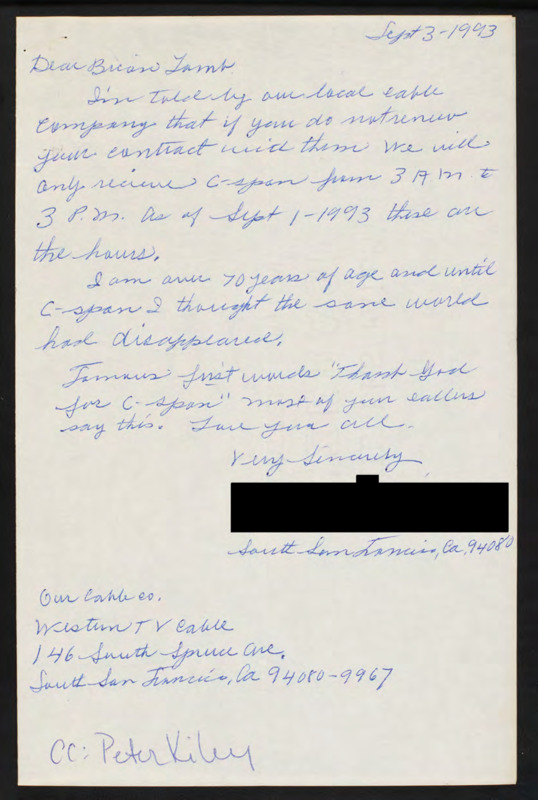 Sept 3-1993
Dear Brian Lamb
I'm told by our local cable
company that if you do not renew
your contract with them we will
only recieve C-span from 3 A.M. to
3 P.M. as of Sept 1-1993 these are
the hours.
I am over 70 years of age and until
C-span I thought the sane world
had disappeared.
Famous first words "Thank God
for C-span" most of your callers
say this. Love you all.
Very Sincerely
South San Francisco, Ca, 94080
Our Cable co.
Western TV Cable
146 South Spruce Ave.
South San Francisco, Ca 94080-9967
CC: Peter Kiley